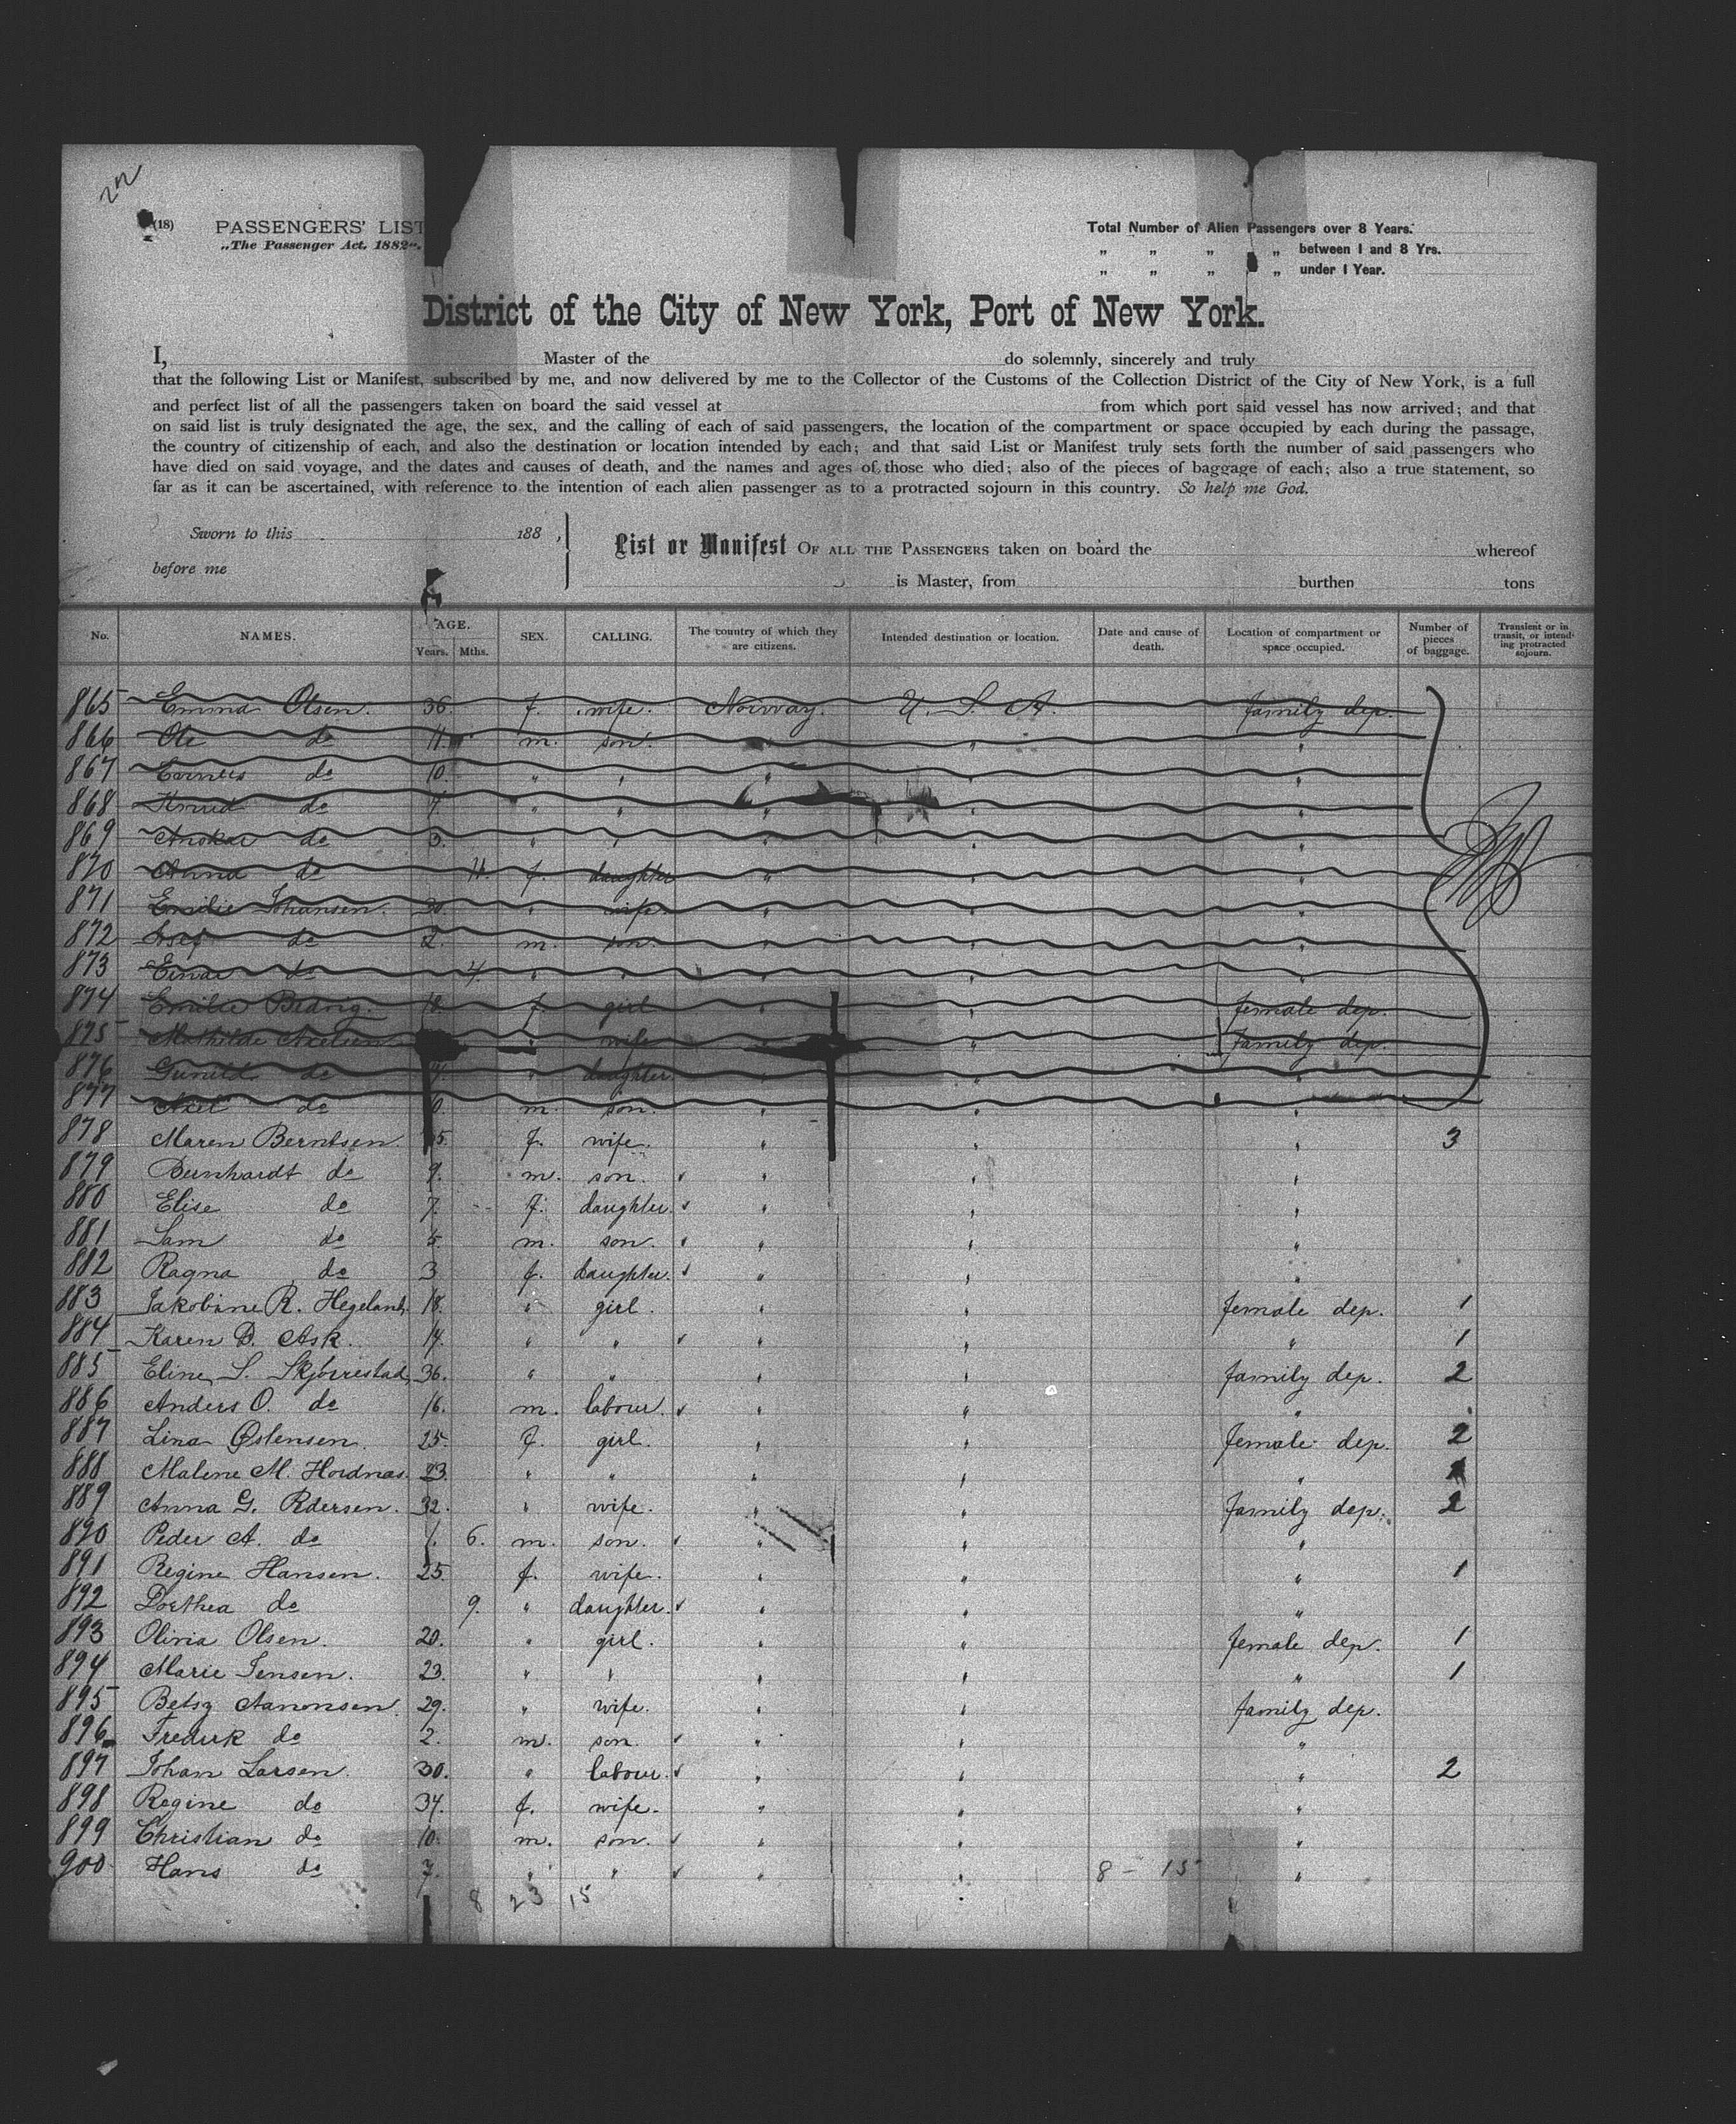 22
(18) PASSENGERS' LIST
„The Passenger Act. 1882“.
Total Number of Alien Passengers over 8 Years.
„ „ „ „ between 1 and 8 Yrs.
„ „ „ „ under 1 Year.
District of the City of New York, Port of New York.
I, Master of the do solemnly, sincerely and truly
that the following List or Manifest, subscribed by me, and now delivered by me to the Collector of the Customs of the Collection District of the City of New York, is a full
and perfect list of all the passengers taken on board the said vessel at from which port said vessel has now arrived; and that
on said list is truly designated the age, the sex, and the calling of each of said passengers, the location of the compartment or space occupied by each during the passage,
the country of citizenship of each, and also the destination or location intended by each; and that said List or Manifest truly sets forth the number of said passengers who
have died on said voyage, and the dates and causes of death, and the names and ages of those who died; also of the pieces of baggage of each; also a true statement, so
far as it can be ascertained, with reference to the intention of each alien passenger as to a protracted sojourn in this country. So help me God.
Sworn to this 188 ,
before me
List or Manifest OF ALL THE PASSENGERS taken on board the whereof
is Master, from burthen tons
No. NAMES. AGE. Years. Mths. SEX. CALLING. The country of which they are citizens. Intended destination or location. Date and cause of death. Location of compartment or space occupied. Number of pieces of baggage. Transient or in transit, or intending protracted sojourn.
865 Emma Olsen. 36. f. wife. Norway. U. S. A. family dep.
866 Ole do 11. m. son. " " "
867 do 10. " " " " "
868 Knud do 7. " " " " "
869 Anskar do 3. " " " " "
870 Anna do 11. f. daughter " " "
871 Emilie Johansen. 30. " wife. " " "
872 do 2. m. son. " " "
873 Einar do 4. " " " " "
874 Emilie 18. f. girl " " female dep.
875 Mathilde " wife " " family dep.
876 Gunild do " daughter. " " "
877 Axel do 0. m. son. " " "
878 Maren Berntsen. 5. f. wife. " " " 3
879 Bernhardt do 9. m. son. " " "
880 Elise do 7. f. daughter. " " "
881 Sam do 5. m. son. " " "
882 Ragna do 3 f. daughter. " " "
883 Jakobine R. Hegeland. 18. " girl. " " female dep. 1
884 Karen B. Ask. 14. " " " " " 1
885 Eline S. Skjörrestad, 36. " " " " family dep. 2
886 Anders O. do 16. m. labour. " " "
887 Lina Østensen. 25. f. girl. " " female dep. 2
888 Malene M. Hordnas. 23. " " " " "
889 Anna G. Pedersen. 32. " wife. " " family dep. 2
890 Peder A. do 1. 6. m. son. " " "
891 Regine Hansen. 25. f. wife. " " " 1
892 Dorthea do 9. " daughter. " " "
893 Olivia Olsen. 20. " girl. " " female dep. 1
894 Marie Jensen. 23. " " " " " 1
895 Betsy Aanonsen. 29. " wife. " " family dep.
896 Fredrik do 2. m. son. " " "
897 Johan Larsen. 30. " labour. " " " 2
898 Regine do 34. f. wife. " " "
899 Christian do 10. m. son. " " "
900 Hans do 7. " " " " 8 - 15 "
8 23 15